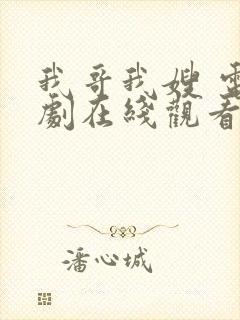 我哥我嫂 電
劇在綫觀看
潘心城